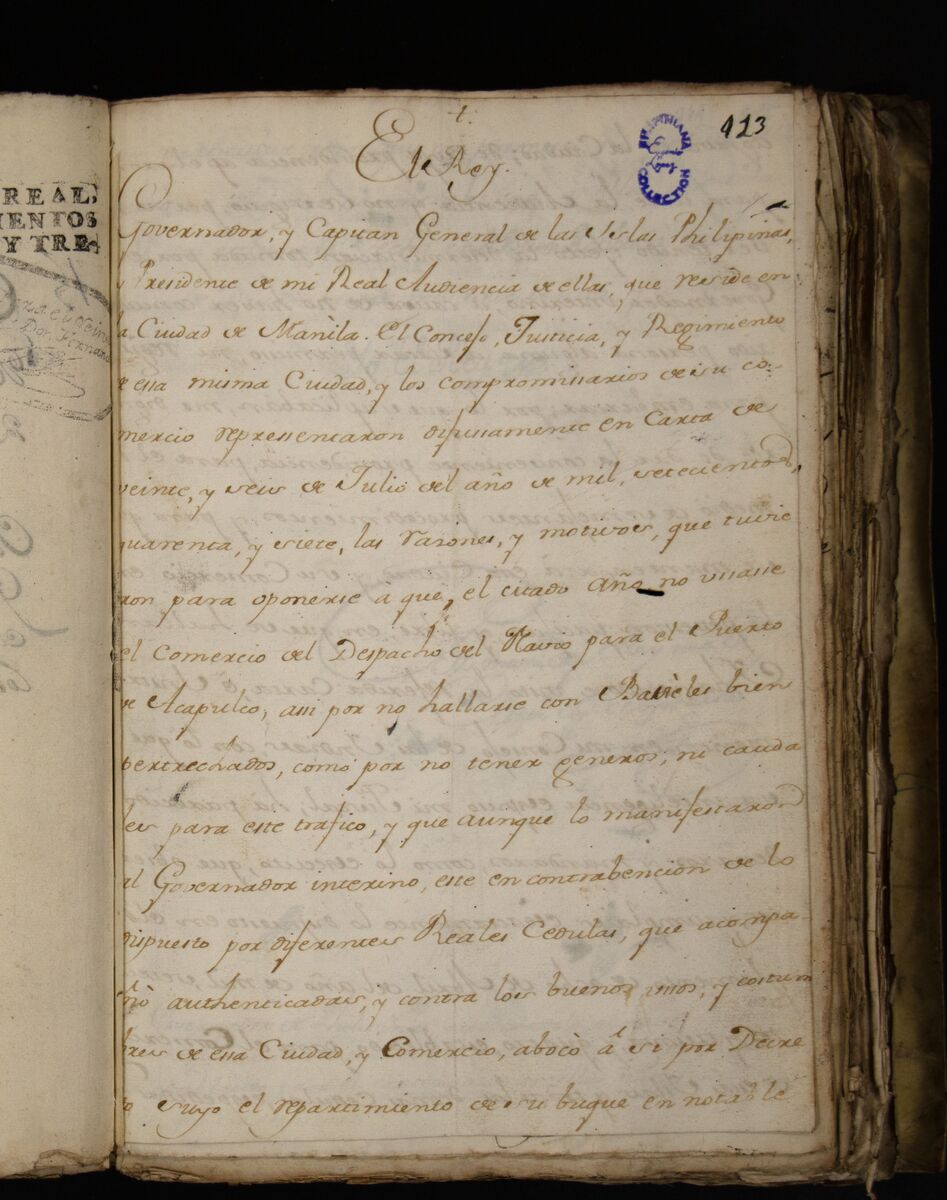 REAL;
IENTOS
Y TRE-
Don Fernand
423
FILIPINIANA
COLLECTION
El Rey.
Governador, y Capitan General de las Yslas Philipinas,
Presidente de mi Real Audiencia de ellas, que reside en
la Ciudad de Manila. El Concejo, Justicia, y Regimiento
de essa misma Ciudad, y los compromissarios de su co-
mercio representaron difusamente en Carta de
veinte, y seis de Julio del año de mil, setecientos,
quarenta, y siete, las razones, y motivos, que tuvie
ron para oponerse a que, el citado año no usasse
el Comercio del Despacho del Navio para el Puerto
de Acapulco, assi por no hallarse con Baxeles bien
pertrechados, como por no tener generos, ni cauda
les para este trafico, y que aunque lo manifestaron
al Governador interino, este en contrabencion de lo
dispuesto por diferentes Reales Cedulas, que acompa-
ñò authenticadas, y contra los buenos usos, y costum
bres de essa Ciudad, y Comercio, abocò â si por Decre
to suyo el repartimiento de su buque en notable